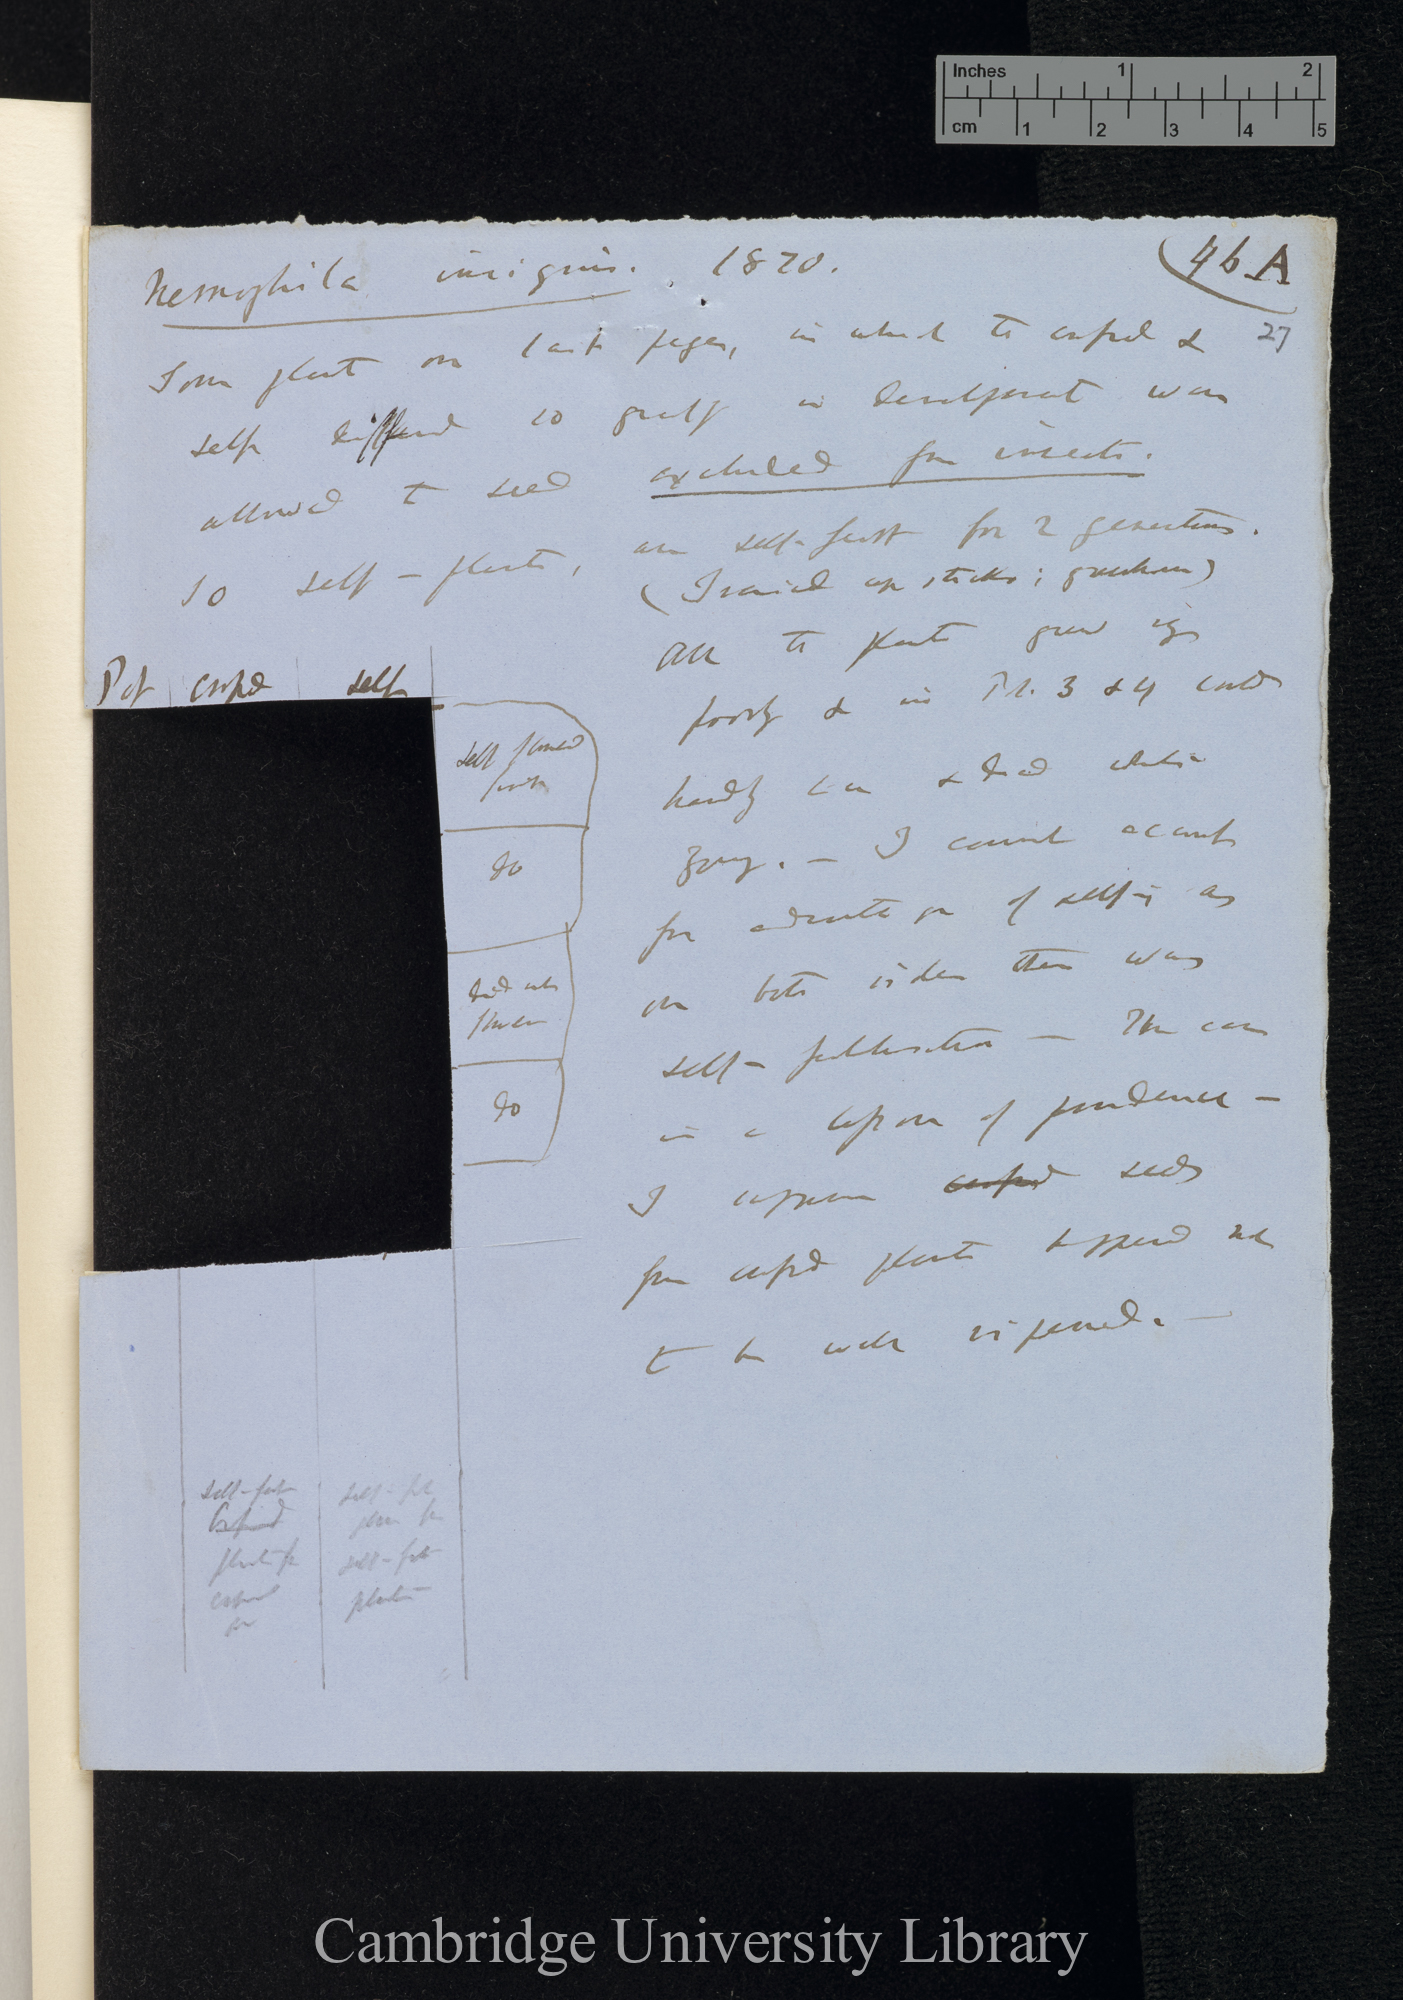 Inches 1 2
cm 1 2 3 4 5
Nemophila insignis. 1870.
46A
27
From plant on last pages, in which the crossed &
self differed so greatly in development was
allowed to seed excluded from insects.
So self-plants, are self-fert for 2 generations.
(I raised up sticks; greenhouse)
All the plants grew
poorly & in Pl. 3 & 4 could
hardly live & died whilst
young. — I cannot account
for of selfs as
on both sides there was
self-fertilisation — This case
is a lesson of prudence —
I suppose crossed seeds
from crossed plants happened not
to be well ripened. —
Pot crossed self
self flowered
first
do
did not
flower
do
self-fert
Crossed
plants fr
crossed
self-fert
plants from
self-fert
plants
Cambridge University Library